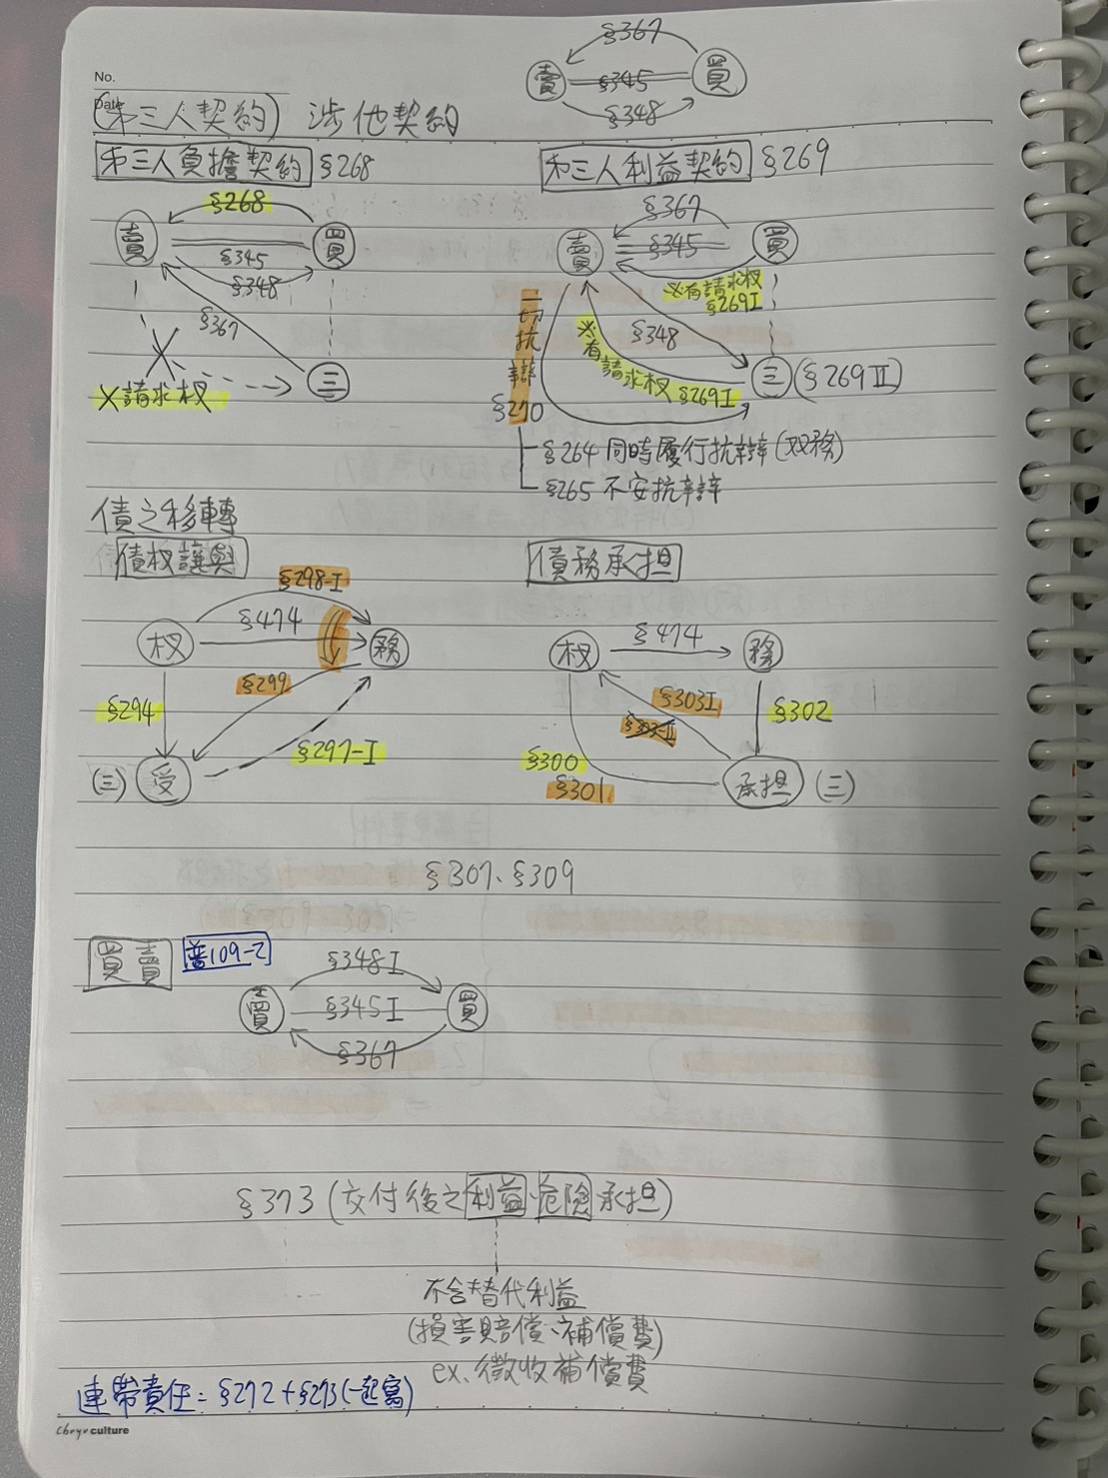 §367
賣 §345 買
§348
No.
Date
(第三人契約) 涉他契約
第三人負擔契約 §268
§268
賣 買
§345
§348
§367
三
×請求权
第三人利益契約 §269
§367
賣 §345 買
※有請求权
§269I
§348
※有請求权 §269I
三 (§269 II)
一切抗辯
§270
§264 同時履行抗辯 (双務)
§265 不安抗辯
債之移轉
債权讓與
§298-I
§474
权 務
§299
§294
§297-I
(三) 受
債務承担
权 §474 務
§303I
§303-II
§302
§300
§301
承担 (三)
§307、§309
買賣 普109-2
§348I
賣 §345I 買
§367
§373 (交付後之利益、危險承担)
不含替代利益
(損害賠償、補償費)
ex. 徵收補償費
連帶責任：§272+§273(一起寫)
culture